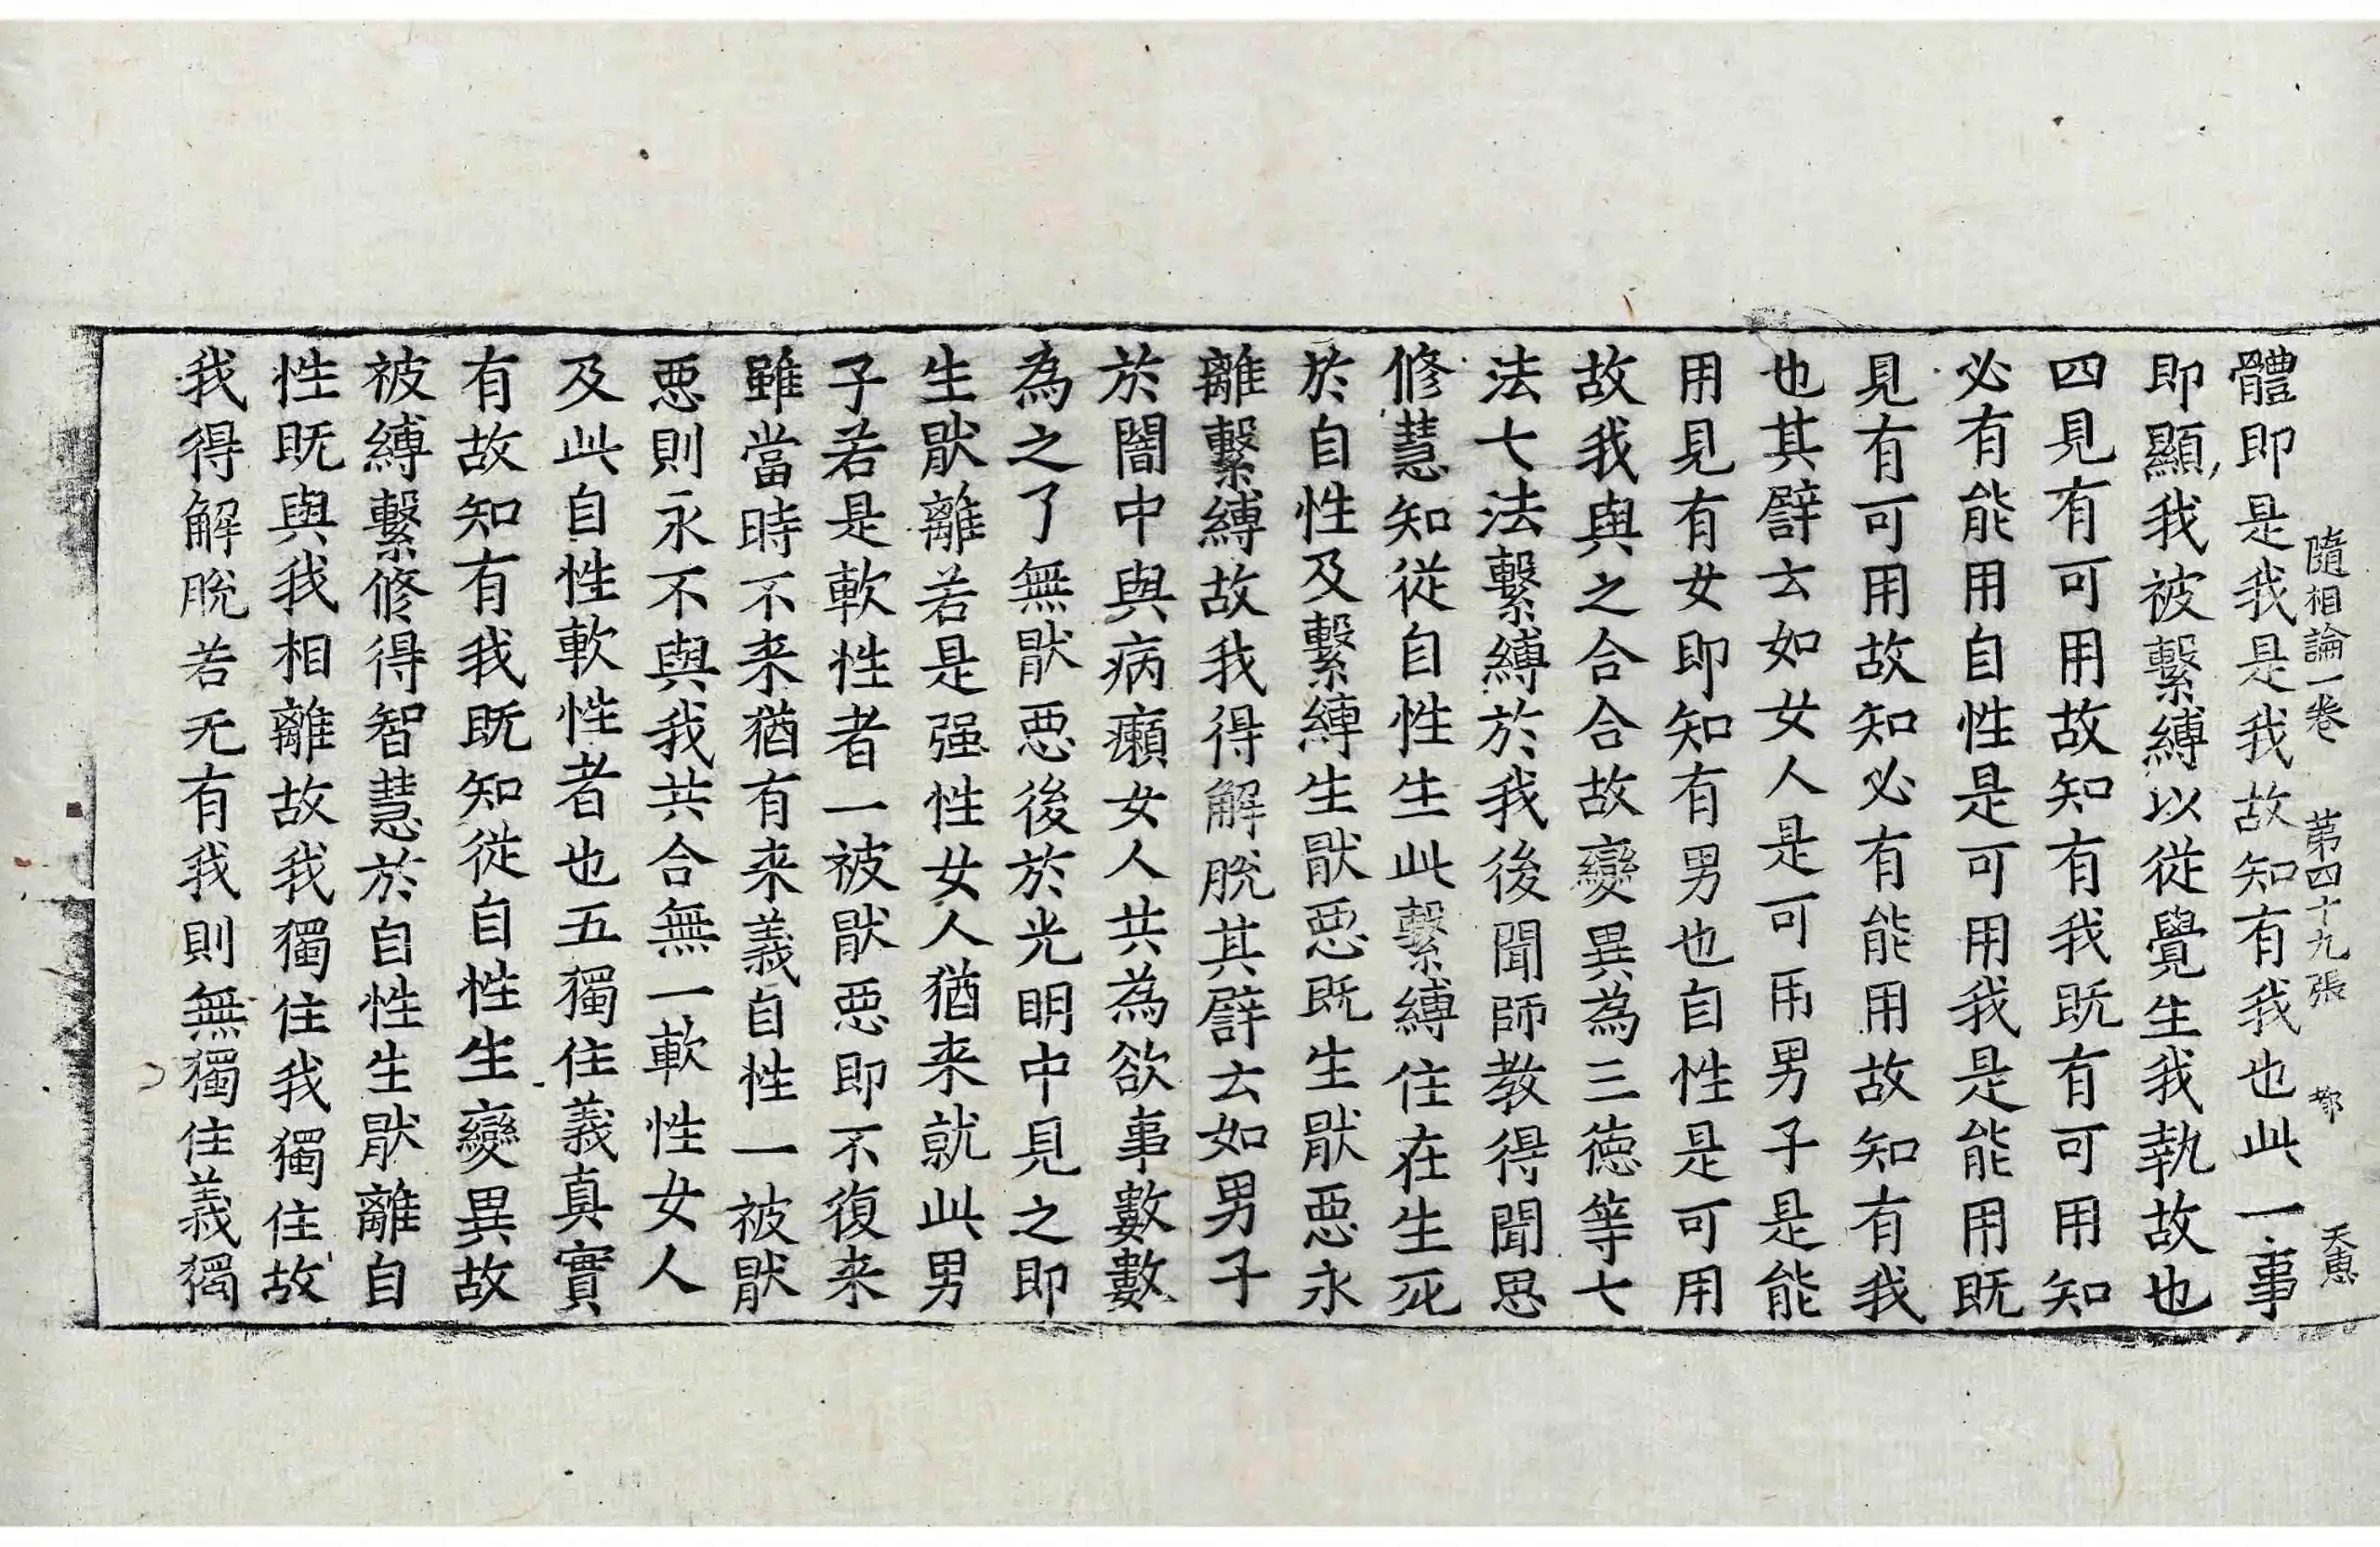 隨相論一卷 第四十九張 欝 天惠
體即是我是我故知有我也此一事
即顯我被繫縛以從覺生我執故也
四見有可用故知有我既有可用知
必有能用自性是可用我是能用既
見有可用故知必有能用故知有我
也其譬云如女人是可用男子是能
用見有女即知有男也自性是可用
故我與之合合故變異為三德等七
法七法繫縛於我後聞師教得聞思
修慧知從自性生此繫縛住在生死
於自性及繫縛生猒惡既生猒惡永
離繫縛故我得解脫其譬云如男子
於闇中與病癩女人共為欲事數數
為之了無猒惡後於光明中見之即
生猒離若是强性女人猶来就此男
子若是軟性者一被猒惡即不復来
雖當時不来猶有来義自性一被猒
惡則永不與我共合無一軟性女人
及此自性軟性者也五獨住義真實
有故知有我既知從自性生變異故
被縛繫修得智慧於自性生猒離自
性既與我相離故我獨住我獨住故
我得解脫若无有我則無獨住義獨